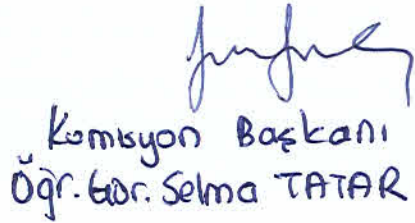 Komisyon Başkanı
Öğr. Gör. Selma TATAR